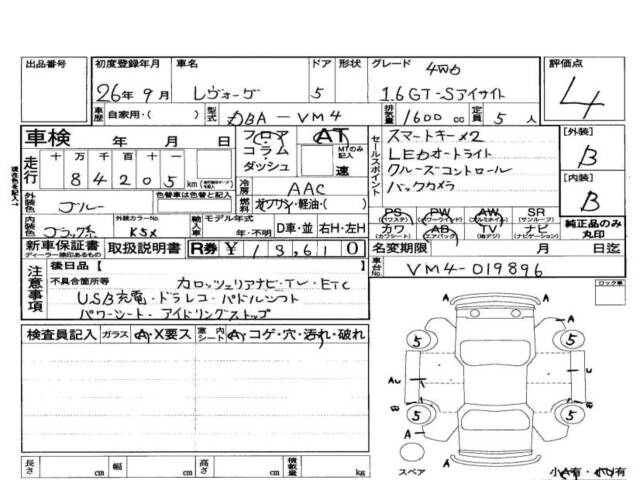 出品番号 初度登録年月 車名 ドア 形状 グレード 4WD 評価点
26年9月 レヴォーグ 5 1.6GT-Sアイサイト 4
車歴 自家用・( ) 型式 DBA-VM4 排気量 1600cc 定員 5人
車検 年 月 日 フロア AT セールスポイント スマートキー×2 【外装】
コラム MTのみ記入 LEDオートライト B
走行 十万千百十 84205km ダッシュ 速 クルーズコントロール
冷房 AAC バックカメラ 【内装】
外装色 ブルー 色替車は色替と記入 燃料 ガソリン・軽油・( ) B
PS (パワステ) PW (パワーウインド) AW (アルミホイル) SR (サンルーフ)
内装色 ブラック系 外装カラーNo. K5X 輸入車 モデル年式 年・不明 D車・並 右H・左H カワ (カワシート) AB (エアバッグ) TV (地デジ) ナビ 純正品のみ丸印
新車保証書 ディーラー捺印あるもの 取扱説明書 R券 ¥13,610 名変期限 月 日迄
車台No. VM4-019896
注意事項 後日品【 】
不具合箇所等 カロッツェリアナビ・TV・ETC
USB充電・ドラレコ・パドルシフト
パワーシート・アイドリングストップ
ロック車
検査員記入 ガラス A・X要ス 室内シート A・コゲ・穴・汚れ・破れ
A
A A
5 5
AU U
W W
5 5
A A
スペア A 小A有・小U有
長さ cm 幅 cm 高さ cm 積載量 kg
現状色を記入→